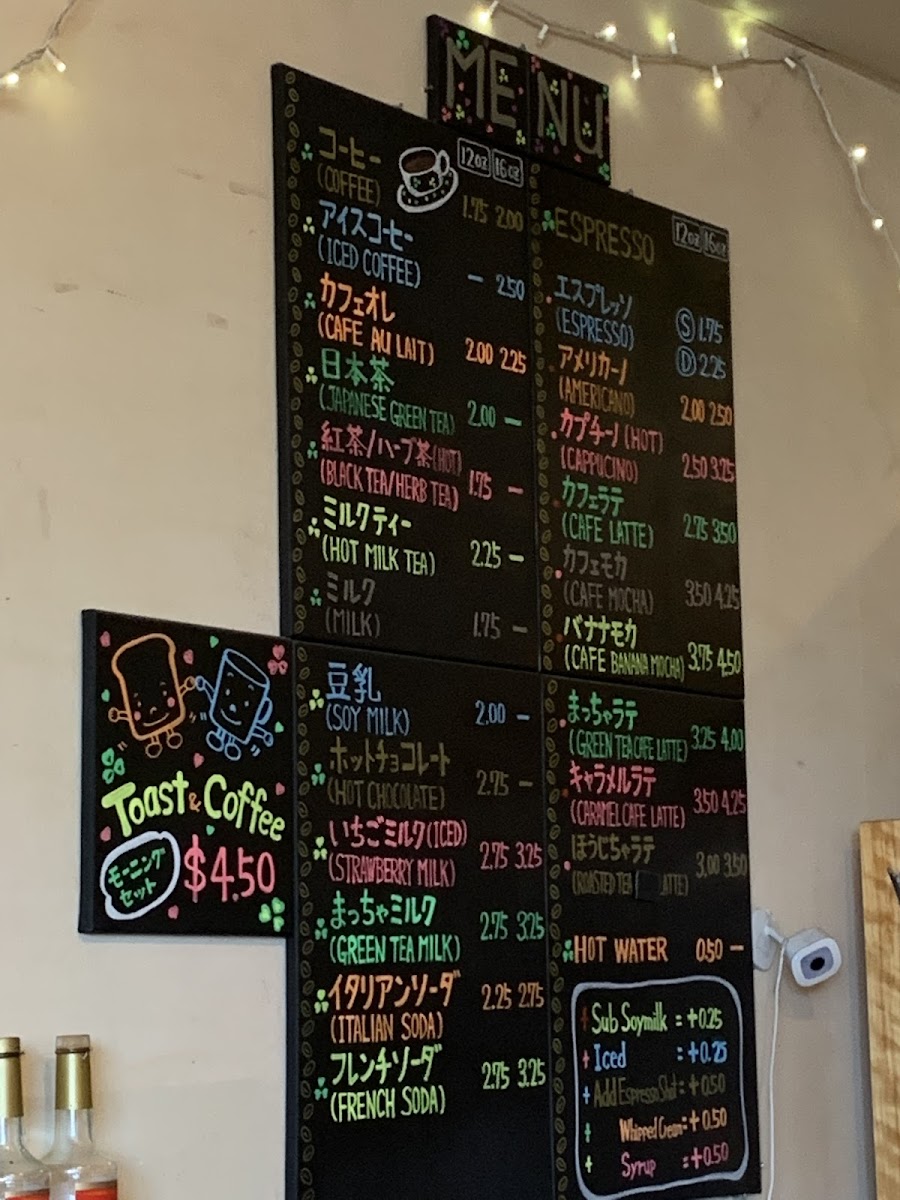 MENU
12oz 16oz
コーヒー
(COFFEE) 1.75 2.00
アイスコーヒー
(ICED COFFEE) — 2.50
カフェオレ
(CAFE AU LAIT) 2.00 2.25
日本茶
(JAPANESE GREEN TEA) 2.00 —
紅茶/ハーブ茶(HOT)
(BLACK TEA/HERB TEA) 1.75 —
ミルクティー
(HOT MILK TEA) 2.25 —
ミルク
(MILK) 1.75 —
豆乳
(SOY MILK) 2.00 —
ホットチョコレート
(HOT CHOCOLATE) 2.75 —
いちごミルク(ICED)
(STRAWBERRY MILK) 2.75 3.25
まっちゃミルク
(GREEN TEA MILK) 2.75 3.25
イタリアンソーダ
(ITALIAN SODA) 2.25 2.75
フレンチソーダ
(FRENCH SODA) 2.75 3.25
ESPRESSO 12oz 16oz
エスプレッソ
(ESPRESSO) Ⓢ 1.75
Ⓓ 2.25
アメリカーノ
(AMERICANO) 2.00 2.50
カプチーノ(HOT)
(CAPPUCINO) 2.50 3.25
カフェラテ
(CAFE LATTE) 2.75 3.50
カフェモカ
(CAFE MOCHA) 3.50 4.25
バナナモカ
(CAFE BANANA MOCHA) 3.75 4.50
まっちゃラテ
(GREEN TEA CAFE LATTE) 3.25 4.00
キャラメルラテ
(CARAMEL CAFE LATTE) 3.50 4.25
ほうじちゃラテ
(ROASTED TEA LATTE) 3.00 3.50
HOT WATER 0.50 —
+ Sub Soymilk = +0.25
+ Iced = +0.25
+ Add Espresso Shot = +0.50
+ Whipped Cream = +0.50
+ Syrup = +0.50
Toast & Coffee
モーニング
セット
$4.50